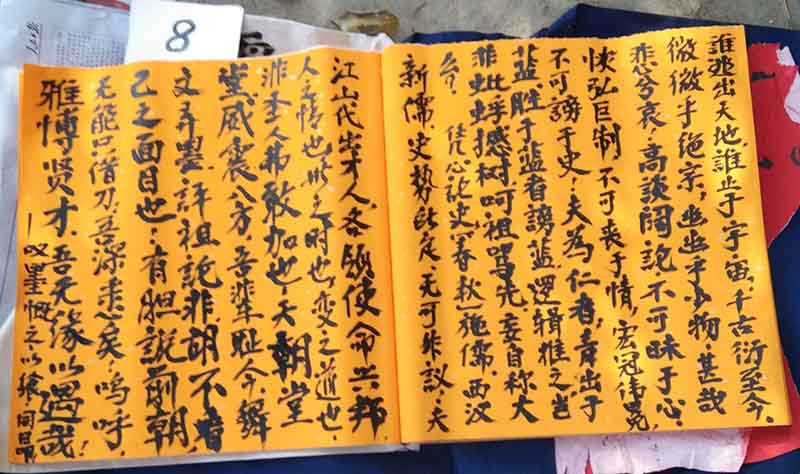 8
誰逃出天地,誰止于宇宙,千古衍至今。
微微乎绝,幽幽乎少物,甚哉
悲兮哀,高談闊說不可昧于心,
恢弘巨制不可丧于情,宏冠偉冕
不可謗于史,夫為仁者,青出于
蓝胜于蓝者謗蓝逻辑推之岂
非蚍蜉撼树呵祖骂先,妄自称大
凭心论史,春秋施儒,西汉
新儒,史势既定,无可非议,夫
江山代出才人,各領使命兴邦,
人之情也,此之时也,变之道也,
非圣人弗敢加也,天朝堂
堂,威震八方,吾辈耻今舞
文弄墨評祖說非,胡不看
己之面目也,有胆說前朝,
无能只借刀,吾深矣,呜呼,
雅博贤才,吾无缘以遇哉!
—叹墨慨之以张同